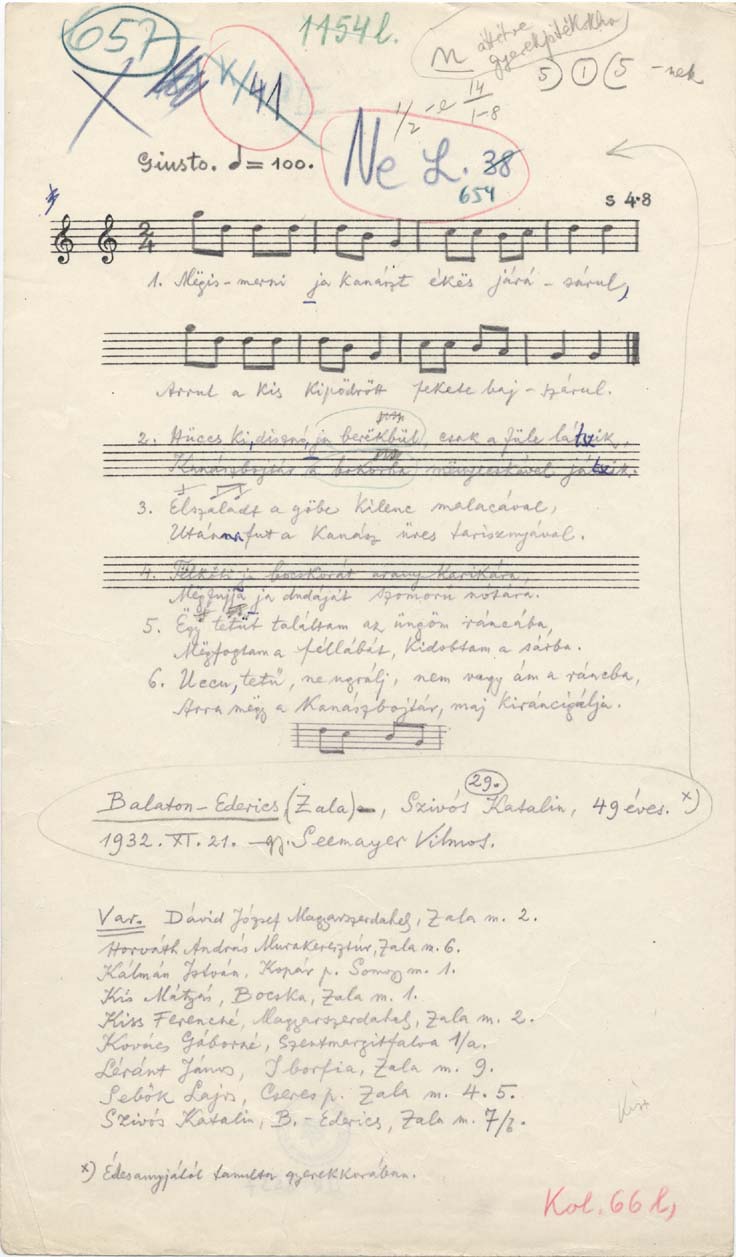 657
1154 l.
N áttéve
gyerekjátékokho
5) (1) (5 -nek
V/41
1/2 -e 14/1-8
Giusto. = 100.
Ne L. 38
654
s 4·8
2/4
1. Mëgis-merni ja kanászt ékës járá-sárul,
Arrul a kis kipödrött fekete baj-szárul.
2. Hüccs ki, disznó, ja berëkbül, csak a füle látszik,
Kanászbojtár a bokorba mënyecskével játszik.
3. Elszaladt a göbe kilenc malacával,
Utánna fut a kanász üres tarisznyával.
4. Fëlköti ja bocskorát arany karikára,
Mëgfujja ja dudáját szomorú nótára.
5. Ëgy tetűt találtam az üngöm ráncába,
Mëgfogtam a féllábát, kidobtam a sárba.
6. Uccu, tetű, ne ugrálj, nem vagy ám a ráncba,
Arra mëgy a kanászbojtár, maj kiráncigálja.
29.
Balaton-Ederics (Zala), Szivós Katalin, 49 éves. x)
1932. XI. 21. gy. Seemayer Vilmos.
Var. Dávid József Magyarszerdahely, Zala m. 2.
Horváth András Murakeresztúr, Zala m. 6.
Kálmán István, Kopár p. Somogy m. 1.
Kis Mátyás, Bocska, Zala m. 1.
Kiss Ferencné, Magyarszerdahely, Zala m. 2.
Kovács Gáborné, Szentmargitfalva 1/a.
Léránt János, Iborfia, Zala m. 9.
Sebők Lajos, Cseres p. Zala m. 4. 5.
Szivós Katalin, B.-Ederics, Zala m. 7/b.
x) Édesanyjától tanulta gyerekkorában.
Kol. 66 l,